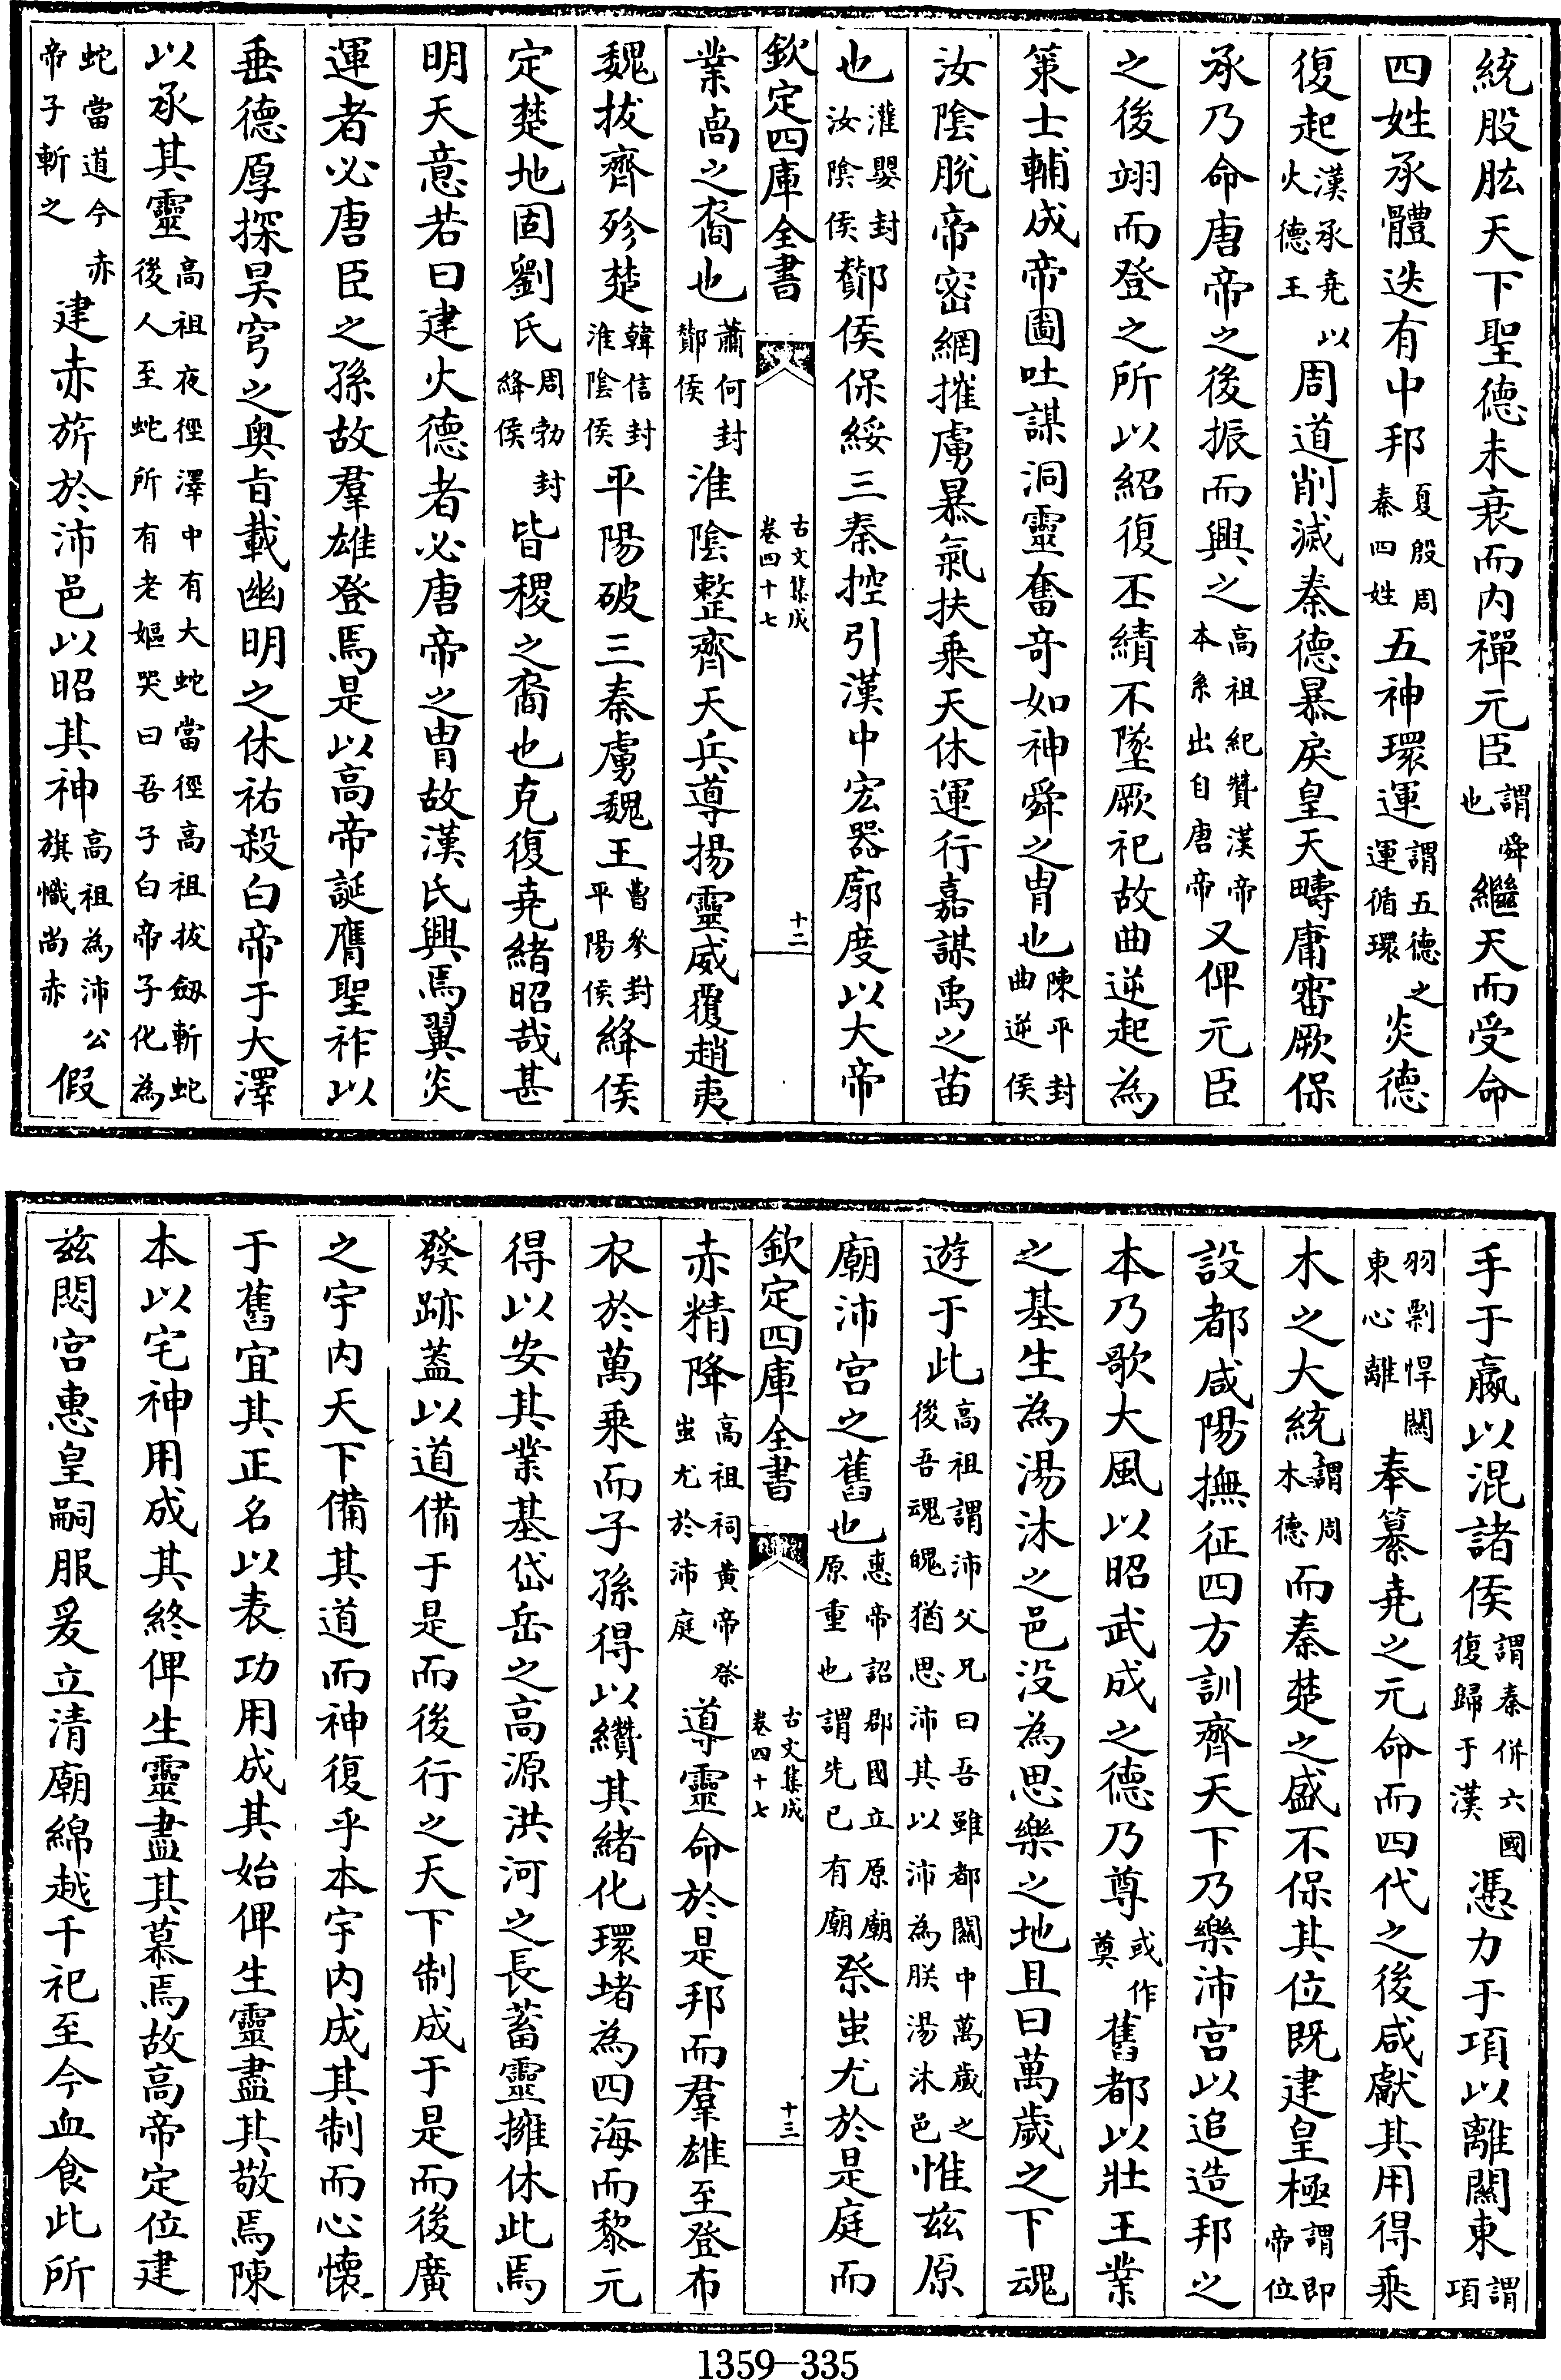 統股肱天下聖德未衰而内禪元臣謂舜也繼天而受命
四姓承體迭有中邦夏殷周秦四姓五神環運謂五德之運循環炎德
復起漢承堯以火德王周道削滅秦德暴戾皇天疇庸審厥保
承乃命唐帝之後振而興之高祖紀贊漢帝本系出自唐帝又俾元臣
之後翊而登之所以紹復丕績不墜厥祀故曲逆起為
策士輔成帝圖吐謀洞靈奮奇如神舜之冑也陳平封曲逆侯
汝陰脫帝密網摧虜暴氣扶乗天休運行嘉謀禹之苗
也灌嬰封汝陰侯酇侯保綏三秦控引漢中宏器廓度以大帝
欽定四庫全書 古文集成卷四十七 十二
業卨之裔也蕭何封酇侯淮陰整齊天兵導揚靈威覆趙夷
魏拔齊殄楚韓信封淮陰侯平陽破三秦虜魏王曹參封平陽侯絳侯
定楚地固劉氏周勃封絳侯皆稷之裔也克復堯緒昭哉甚
明天意若曰建火德者必唐帝之冑故漢氏興焉翼炎
運者必唐臣之孫故羣雄登焉是以高帝誕膺聖祚以
垂德厚探昊穹之奥旨載幽明之休祐殺白帝于大澤
以承其靈高祖夜徑澤中有大蛇當徑高祖拔劒斬蛇後人至蛇所有老嫗哭曰吾子白帝子化為
蛇當道今赤帝子斬之建赤旂於沛邑以昭其神高祖為沛公旗幟尚赤假
手于嬴以混諸侯謂秦併六國復歸于漢憑力于項以離闗東謂項
羽剽悍闗東心離奉纂堯之元命而四代之後咸獻其用得乗
木之大統謂周木德而秦楚之盛不保其位既建皇極謂即帝位
設都咸陽撫征四方訓齊天下乃樂沛宫以追造邦之
本乃歌大風以昭武成之德乃尊或作奠舊都以壯王業
之基生為湯沐之邑没為思樂之地且曰萬歲之下魂
遊于此高祖謂沛父兄曰吾雖都闗中萬歲之後吾魂魄猶思沛其以沛為朕湯沐邑惟兹原
廟沛宫之舊也惠帝詔郡國立原廟原重也謂先已有廟祭蚩尤於是庭而
欽定四庫全書 古文集成卷四十七 十三
赤精降高祖祠黄帝祭蚩尤於沛庭導靈命於是邦而羣雄至登布
衣於萬乗而子孫得以纘其緒化環堵為四海而黎元
得以安其業基岱岳之高源洪河之長蓄靈擁休此焉
發跡蓋以道備于是而後行之天下制成于是而後廣
之宇内天下備其道而神復乎本宇内成其制而心懷
于舊宜其正名以表功用成其始俾生靈盡其敬焉陳
本以宅神用成其終俾生靈盡其慕焉故高帝定位建
兹閟宫惠皇嗣服爰立清廟綿越千祀至今血食此所
1359—335